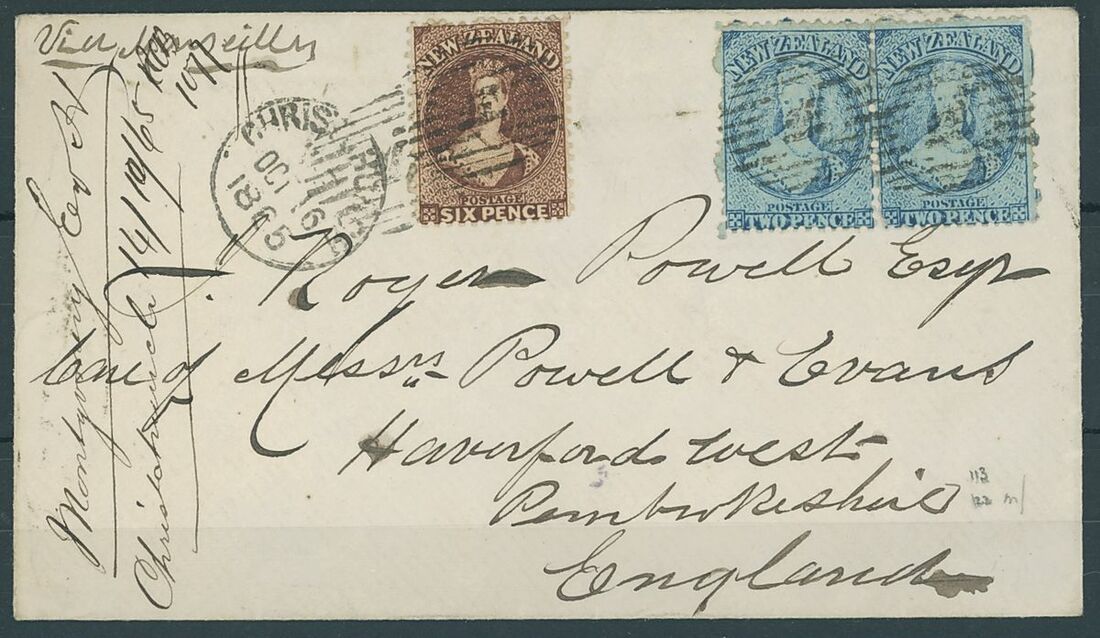 Via Marseilles
NEW ZEALAND
POSTAGE
SIX PENCE
NEW ZEALAND
POSTAGE
TWO PENCE
NEW ZEALAND
POSTAGE
TWO PENCE
CHRISTCHURCH
OC 16
1865
Roger Powell Esqr
Care of Messrs Powell & Evans
Haverfordwest
Pembrokeshire
England
Montgomery &
Christchurch 14/10/65
113
122